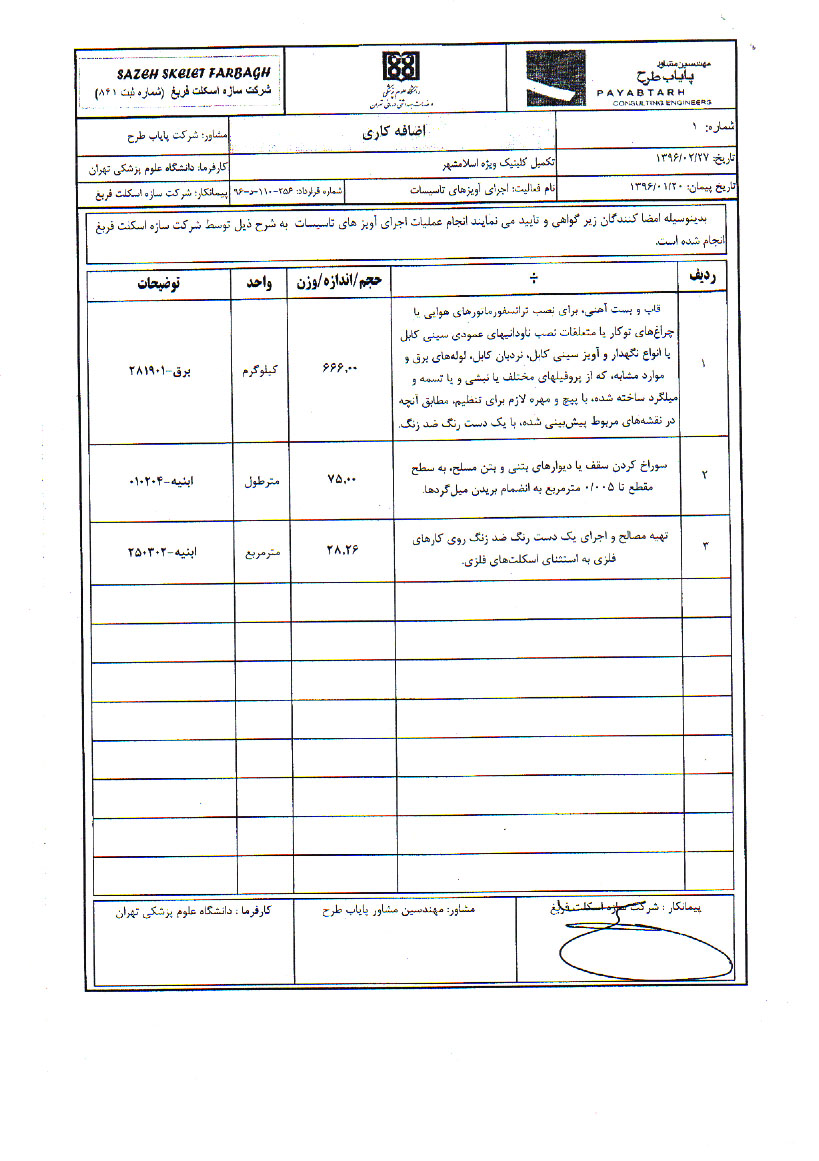 مهندسین مشاور
پایاب طرح
PAYABTARH
CONSULTING ENGINEERS
SAZEH SKELET FARBAGH
شرکت سازه اسکلت فربغ (شماره ثبت ۸۴۱)
شماره: ۱
اضافه کاری
مشاور: شرکت پایاب طرح
تاریخ: ۱۳۹۶/۰۲/۲۷
تکمیل کلینیک ویژه اسلامشهر
کارفرما: دانشگاه علوم پزشکی تهران
تاریخ پیمان: ۱۳۹۶/۰۱/۲۰
نام فعالیت: اجرای آویزهای تاسیسات
شماره قرارداد: ۲۵۶-۱۱۰-د-۹۶
پیمانکار: شرکت سازه اسکلت فربغ
بدینوسیله امضا کنندگان زیر گواهی و تایید می نمایند انجام عملیات اجرای آویز های تاسیسات به شرح ذیل توسط شرکت سازه اسکلت فربغ
انجام شده است.
ردیف ÷ حجم/اندازه/وزن واحد توضیحات
قاب و بست آهنی، برای نصب ترانسفورماتورهای هوایی یا
چراغ‌های توکار یا متعلقات نصب ناودانیهای عمودی سینی کابل
یا انواع نگهدار و آویز سینی کابل، نردبان کابل، لوله‌های برق و
۱ ۶۶۶.۰۰ کیلوگرم برق-۲۸۱۹۰۱
موارد مشابه، که از پروفیلهای مختلف یا نبشی و یا تسمه و
میلگرد ساخته شده، با پیچ و مهره لازم برای تنظیم، مطابق آنچه
در نقشه‌های مربوط پیش‌بینی شده، با یک دست رنگ ضد زنگ.
سوراخ کردن سقف یا دیوارهای بتنی و بتن مسلح، به سطح
۲ ۷۵.۰۰ مترطول ابنیه-۰۱۰۲۰۴
مقطع تا ۰/۰۰۵ مترمربع به انضمام بریدن میل‌گردها.
تهیه مصالح و اجرای یک دست رنگ ضد زنگ روی کارهای
۳ ۲۸.۲۶ مترمربع ابنیه-۲۵۰۳۰۲
فلزی به استثنای اسکلت‌های فلزی.
پیمانکار : شرکت سازه اسکلت فربغ
مشاور: مهندسین مشاور پایاب طرح
کارفرما : دانشگاه علوم پزشکی تهران